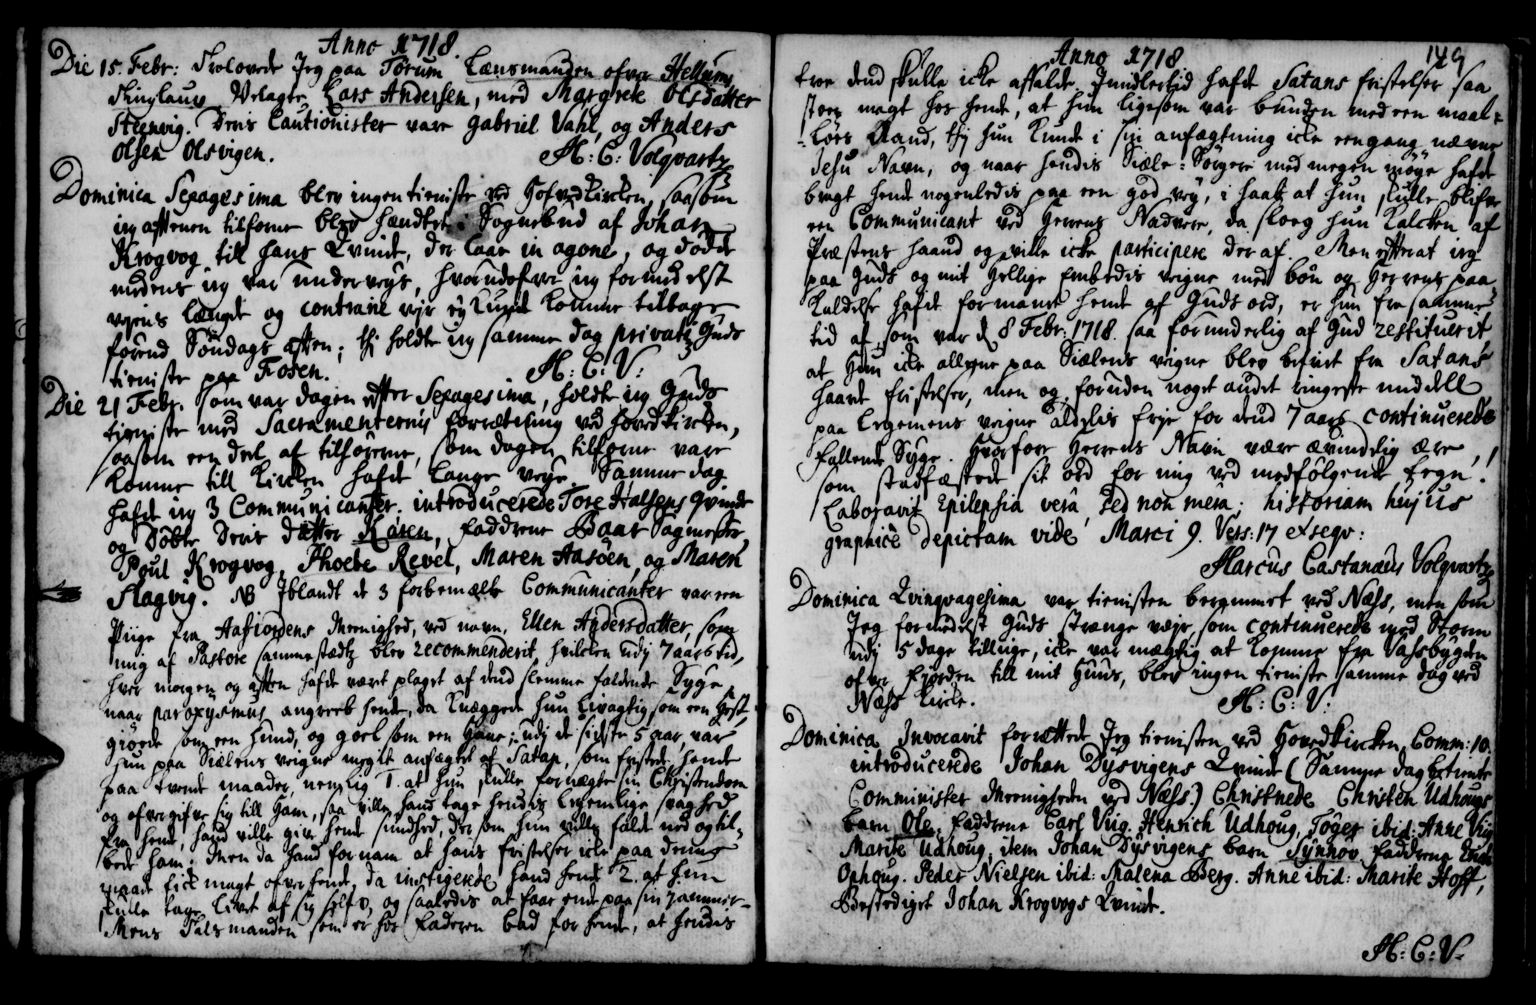 Anno 1718.
Die 15. Febr: Trolovede Jeg paa Torum Lænsmanden ofver Hellums
Skinglaug Velagte Lars Andersen, med Margrete Olsdatter
Steenvig. Deris Cautionister vare Gabriel Vahl, og Anders
Olsen Olsvigen. M: C: Volqvartz
Dominica Sexagesima blev ingen tieniste ved Hofvedkircken, saasom
ieg aftenen tilforne blev handtet Sognebud af Johan
Krogvog till hans Qvinde, der laae in agone, og døde
medens ieg var undervejs, hvorudofver ieg formedelst
vejens længde og contraire vejr ej kunde komme tilbage
førend Søndags aften; thi holdte ieg samme dag privat Guds
tieniste paa Fosen. M: C: V:
Die 21 Febr. som var dagen efter Sexagesima, holdte ieg Guds
tieniste med Sacramenternis forrætning ved Hovedkircken,
saasom een deel af tilhørerne, som dagen tilforne vare
komne till Kircken hafde lange veje. Samme dag
hafde ieg 3 Communicanter. introducerede Tore Halsens Qvinde
og Døbte Deris Datter Karen, Faddrene Baar Sagmester,
Poul Krogvog, Phoebe Revel, Maren Aasöen, og Maren
Slagvig. NB Iblandt de 3 forbemælte Communicanter var een
Piige fra Aafiordens Meenighed, ved navn, Ellen Andersdatter, som
mig af Pastore sammestædtz blev recommenderit, hvilcken udj 7 aars tid,
hver morgen og aften hafde vært plaget af dend slemme faldende Syge
naar paroxysmus angreeb hende, da knæggede hun livagtig som een Hest,
giøede som een hund, og goel som een Hane; udj de sidste 5 aar, var
hun paa Siælens vegne meget anfægtet af Satan, som fristede hende
paa tvende maader, nemlig 1. at hun skulle fornægte sin Christendom
og ofvergifve sig till ham, saa ville hand tage hendis legemlige svaghed
fra hende, hand ville give hende sundhed, der som hun ville falde ned og til-
bede ham. Men da hand fornam at hans fristelser icke paa denne
maade fick magt ofver hende, da instigerede hand hende 2. at hun
skulle tage livet af sig selfv, og saaledis at faae ende paa sin jammer.
Mens Talsmanden som er hos Faderen bad for hende, at hendis
Anno 1718 149
troe dend skulle icke affalde. Imidlertid hafde Satans fristelser saa
stoer magt hos hende, at hun ligesom var bunden med een maal-
løes Aand, thj hun kunde i sin anfægtning icke eengang nævne
Jesu Navn, og naar hendis Siæle-Sørgere med megen møye hafde
bragt hende nogenledis paa een god vej, i haab at hun skulle blifve
een Communicant ved Herrens Nadvere, da sloeg hun Kalcken af
Præstens haand og ville icke participere der af. Men efterat ieg
paa Guds og mit hellige Embedis vegne med bøn og Herrens paa-
kaldelse hafde formanet hende af Guds ord, er hun fra samme
tid af, som var d 8 Febr. 1718. saa forunderlig af Gud restituerit
at hun icke alleene paa Siælens vegne blev befriet fra Satans
haarde fristelser, men og foruden noget andet ringeste middell
paa Legemens vegne aldelis frje for dend 7 aars continuerede
fallende Syge. Hvorfore Herrens Navn være ævindelig ære,
som stadfæstede sit ord for mig ved medfølgende tegn!
Laboravit Epilepsia vera, sed non mera; historiam hujus
graphicè depictam vide Marci 9. Vers: 17 et seqv:
Marcus Castanæus Volqvartz
Dominica Qvinqvagesima var tienisten berammet ved Næss, men som
Jeg formedelst Guds strænge vejr, som continuerede med Storm
udj 5 dage tillige, icke var mægtig at komme fra Vassbøygden
ofver Fjorden till mit Huus, blev ingen tieniste samme dag ved
Næss Kircke. M: C: V:
Dominica Invocavit forrættede Jeg tienisten ved Hovedkircken, Comm: 10.
introducerede Johan Dysvigens Qvinde (Samme dag betiente
Comminister Meenigheden ved Næss.) Christnede Christen Udhougs
barn Ole, Faddrene Carl Viig. Henrich Udhoug, Töger ibid: Anne Viig
Marite Udhoug, item Johan Dysvigens barn Synnov Faddrene
Ophoug. Peder Nielsen ibid: Malena Berg. Anne ibid: Marite Hoff,
Bestediget Johan Krogvogs Qvinde.
M: C: V: